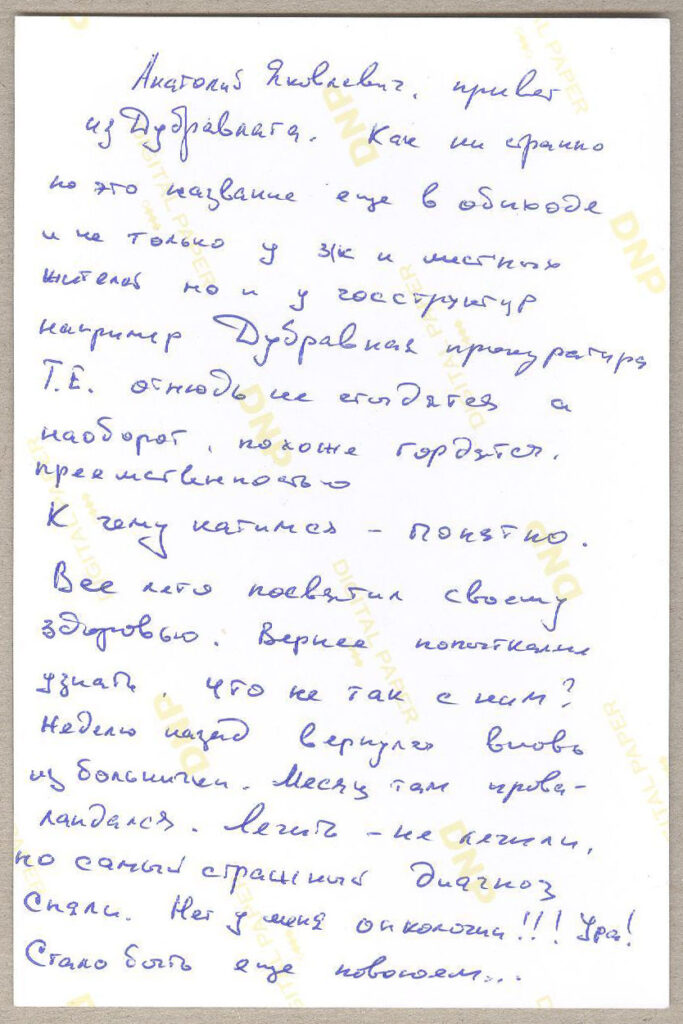 Анатолий Яковлевич, привет
из Дубравлага. Как ни странно
но это название еще в обиходе
и не только у з/к и местных
жителей но и у госструктур
например Дубравная прокуратура
Т.Е. отнюдь не стыдятся а
наоборот, похоже гордятся.
преемственностью
К чему катимся – понятно.
Все лето посвятил своему
здоровью. Вернее попыткам
узнать, что не так с ним?
Неделю назад вернулся вновь
из больнички. Месяц там прова-
ландался. Лечить – не лечили,
но самый страшный диагноз
Сняли. Нет у меня онкологии!!! Ура!
Стало быть еще повоюем...
DNP
DIGITAL PAPER